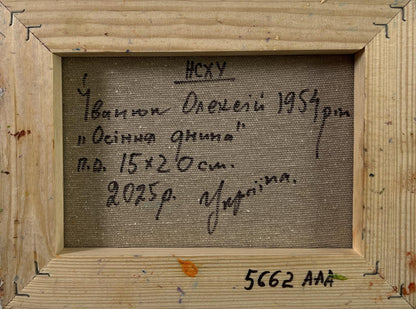 НСХУ
Іванюк Олексій 1954 рік
"Осіння днина"
п.о. 15×20 см.
2025р. Україна.
5662 ААА